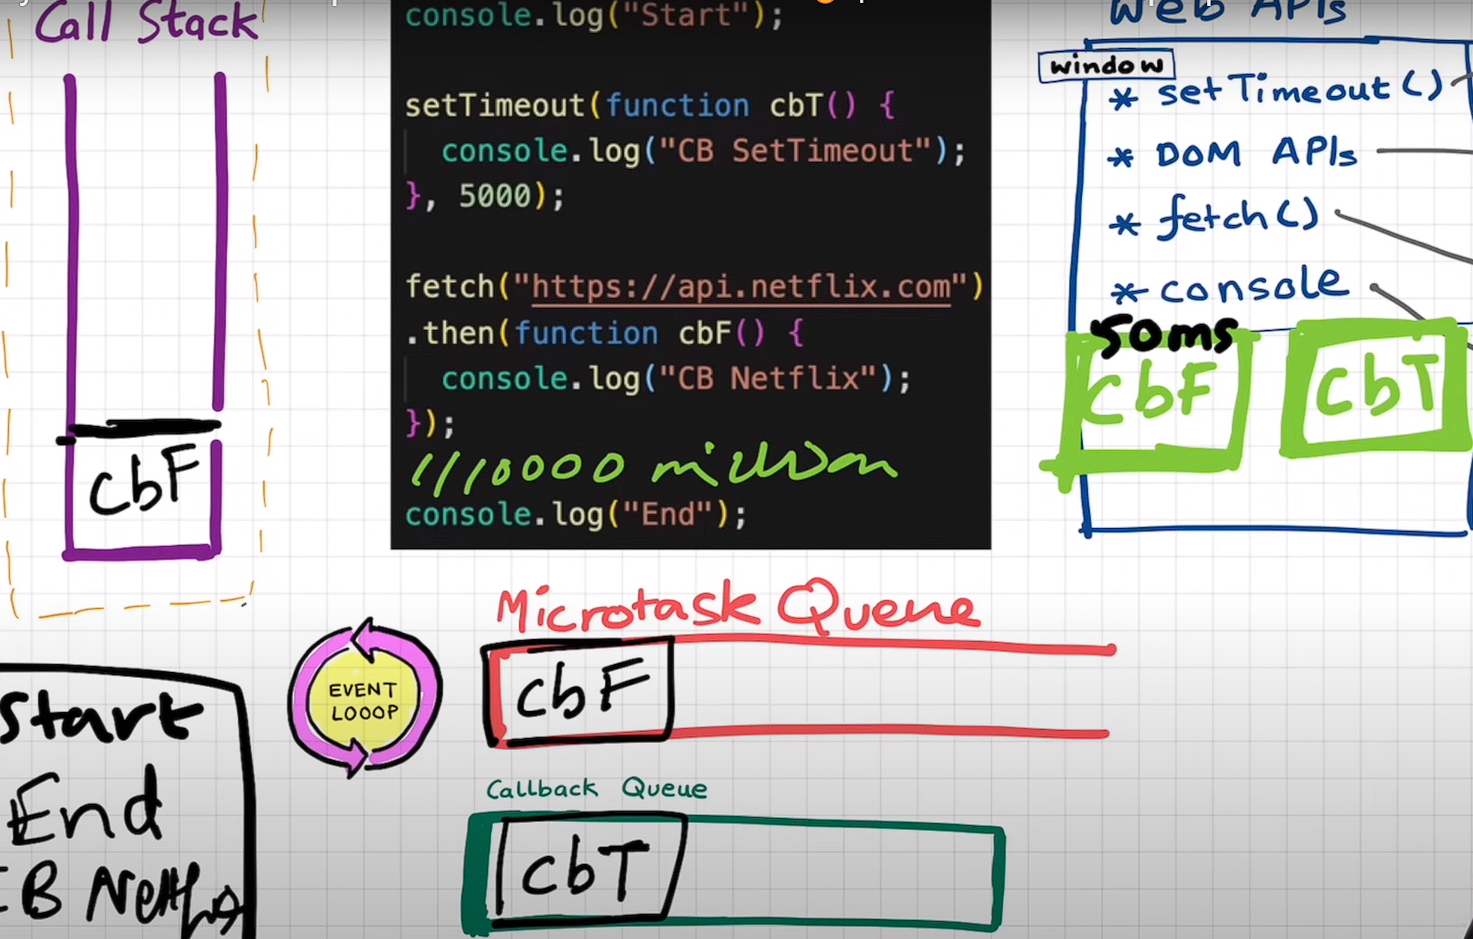 Call Stack
cbF
console.log("Start");
setTimeout(function cbT() {
console.log("CB SetTimeout");
}, 5000);
fetch("https://api.netflix.com")
.then(function cbF() {
console.log("CB Netflix");
});
//10000 million
console.log("End");
Web APIs
window
* setTimeout()
* DOM APIs
* fetch()
* console
50ms
cbF
cbT
EVENT
LOOOP
Microtask Queue
cbF
Callback Queue
cbT
Start
End